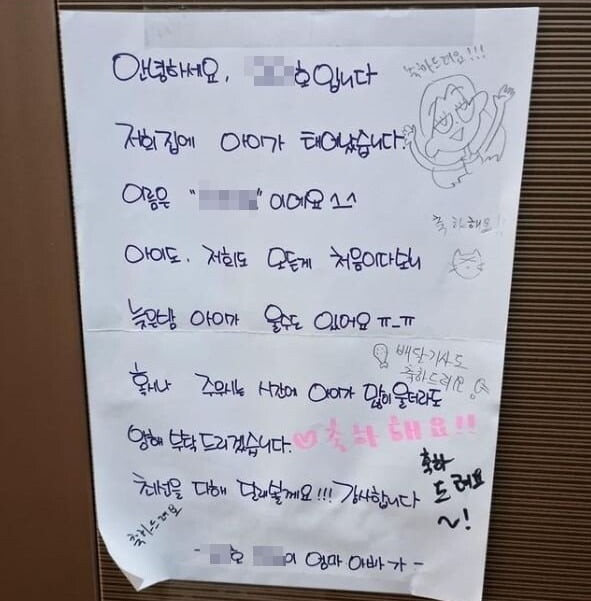 안녕하세요. 호입니다
축하드려요!!!
저희 집에 아이가 태어났습니다.
이름은 " " 이에요 ^_^
축하해요!!
아이도, 저희도 모든게 처음이다보니
늦은밤 아이가 울수도 있어요 ㅠ_ㅠ
배달기사도
축하드려요
혹시나 주무시는 시간에 아이가 많이 울더라도
양해 부탁 드리겠습니다.
♡축하해요!!
축하
드려요
~!
최선을 다해 달래볼께요!!! 감사합니다
축하드려요
- 호 이 엄마 아빠가 -